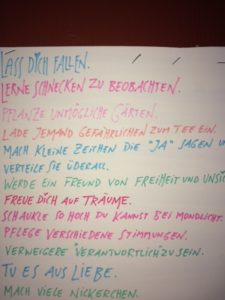 LASS DICH FALLEN.
LERNE SCHNECKEN ZU BEOBACHTEN.
PFLANZE UNMÖGLICHE GÄRTEN.
LADE JEMAND GEFÄHRLICHEN ZUM TEE EIN.
MACH KLEINE ZEICHEN DIE "JA" SAGEN UN
VERTEILE SIE ÜBERALL.
WERDE EIN FREUND VON FREIHEIT UND UNSIC
FREUE DICH AUF TRÄUME.
SCHAUKLE SO HOCH DU KANNST BEI MONDLICHT.
PFLEGE VERSCHIEDENE STIMMUNGEN.
VERWEIGERE VERANTWORTLICH ZU SEIN.
TU ES AUS LIEBE.
MACH VIELE NICKERCHEN.